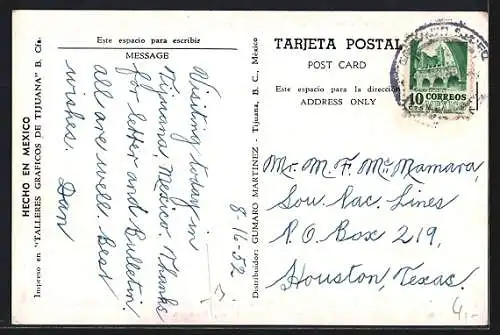 HECHO EN MEXICO
Impreso en "TALLERES GRAFICOS DE TIJUANA" B. Cfa.
Este espacio para escribir
MESSAGE
8-16-52
Visiting today in
Tijuana, Mexico. Thanks
for letter and Bulletin.
all are well. Best
wishes.
Dan
Distribuidor: GUMARO MARTINEZ - Tijuana, B. C., México
TARJETA POSTAL
POST CARD
Este espacio para la dirección
ADDRESS ONLY
10 CORREOS
CTS MEXICO
Mr. M. F. McMamara,
Sou. Pac. Lines
P. O. Box 219,
Houston, Texas.
4,-